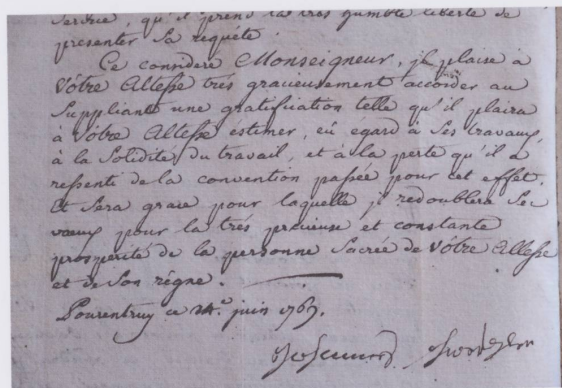 service, qu'il prend la très humble liberté de
presenter Sa requête.
Ce considere Monseigneur, jl plaise à
Vôtre Altesse trés gracieusement accorder au
Suppliant une gratifiation telle qu'il plaira
à Vôtre Altesse éstimer, eû égard à Ses travaux,
à la Solidité du travail, et à la perte qu'il a
ressenti de la convention passée pour cet effet.
Et Sera grace pour laquelle jl redoublera Ses
vœux pour la trés précieuse et constante
prospérité de la personne Sacrée de Vôtre Altesse
et de Son règne.
Pourentruy ce juin 1767.